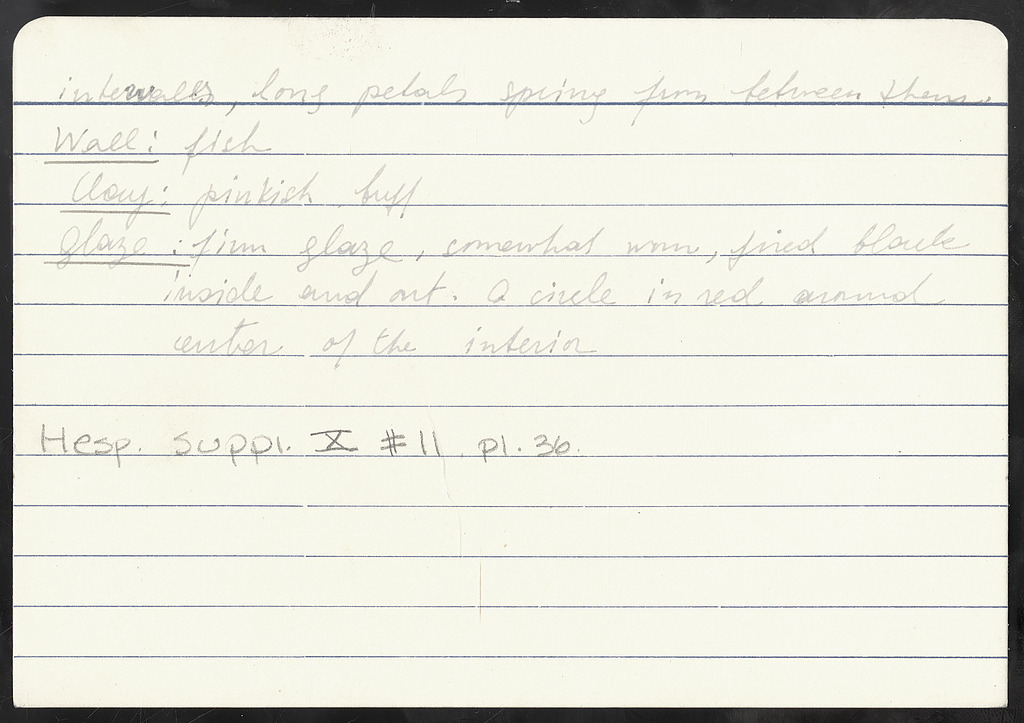 intervalls, long petals spring from between them.
Wall: fish
Clay: pinkish buff
Glaze: firm glaze, somewhat worn, fired black
inside and out. A circle in red around
center of the interior
Hesp. Suppl. X #11 pl. 36.